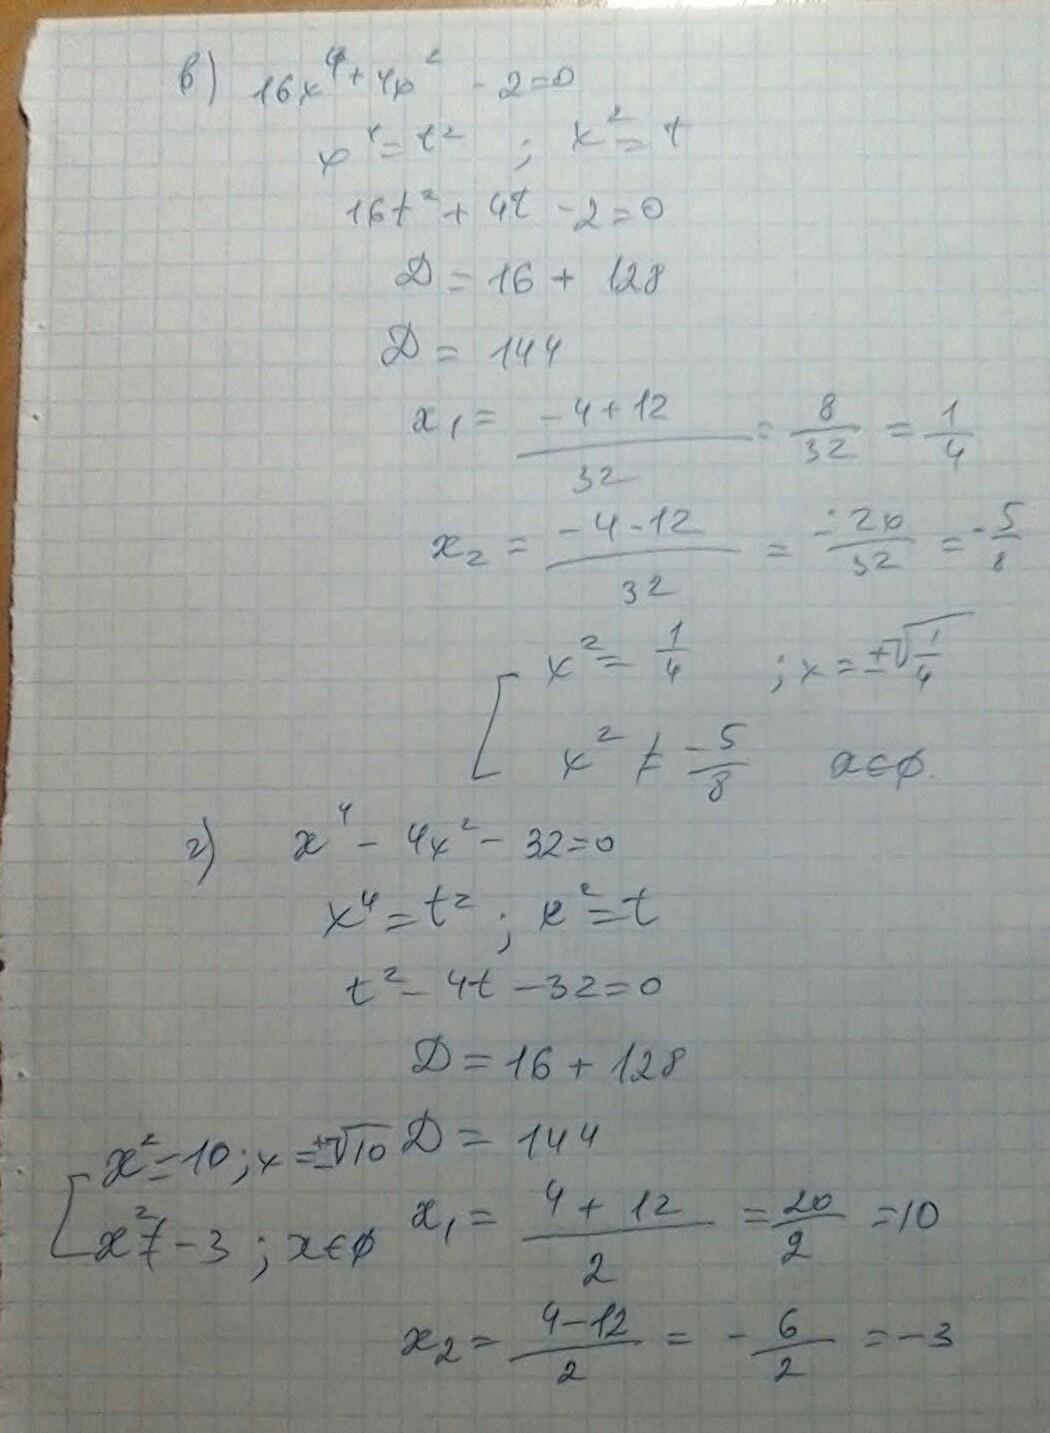 в) 16x⁴ + 4x² - 2 = 0
x⁴ = t² ; x² = t
16t² + 4t - 2 = 0
D = 16 + 128
D = 144
x₁ = (-4+12)/32 = 8/32 = 1/4
x₂ = (-4-12)/32 = -20/32 = -5/8
[ x² = 1/4 ; x = ±√(1/4)
x² ≠ -5/8 x∈∅.
г) x⁴ - 4x² - 32 = 0
x⁴ = t² ; x² = t
t² - 4t - 32 = 0
D = 16 + 128
D = 144
x₁ = (4 + 12)/2 = 20/2 = 10
x₂ = (4-12)/2 = -6/2 = -3
[ x² = 10 ; x = ±√10
x² ≠ -3 ; x∈∅